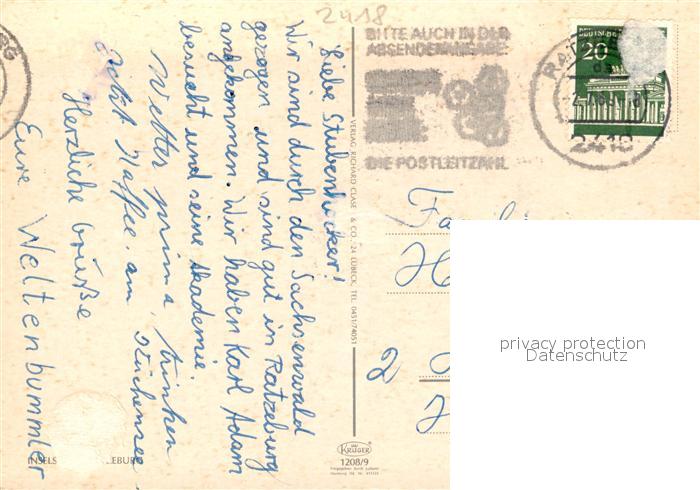 2418
Liebe Stubenhocker!
Wir sind durch den Sachsenwald
gezogen und sind gut in Ratzeburg
angekommen. Wir haben Karl Adam
besucht und seine Akademie.
Wetter prima, trinken
jetzt Kaffee am Küchensee
Herzliche Grüße
Eure Weltenbummler
INSELS EBURG
VERLAG RICHARD CLASE & CO., 24 LÜBECK, TEL. 0451/74051
KRÜGER
1208/9
BITTE AUCH IN DER
ABSENDERANGABE
DIE POSTLEITZAHL
DEUTSCHE
20
RATZEBURG
2418
Familie
H
2
H
privacy protection
Datenschutz